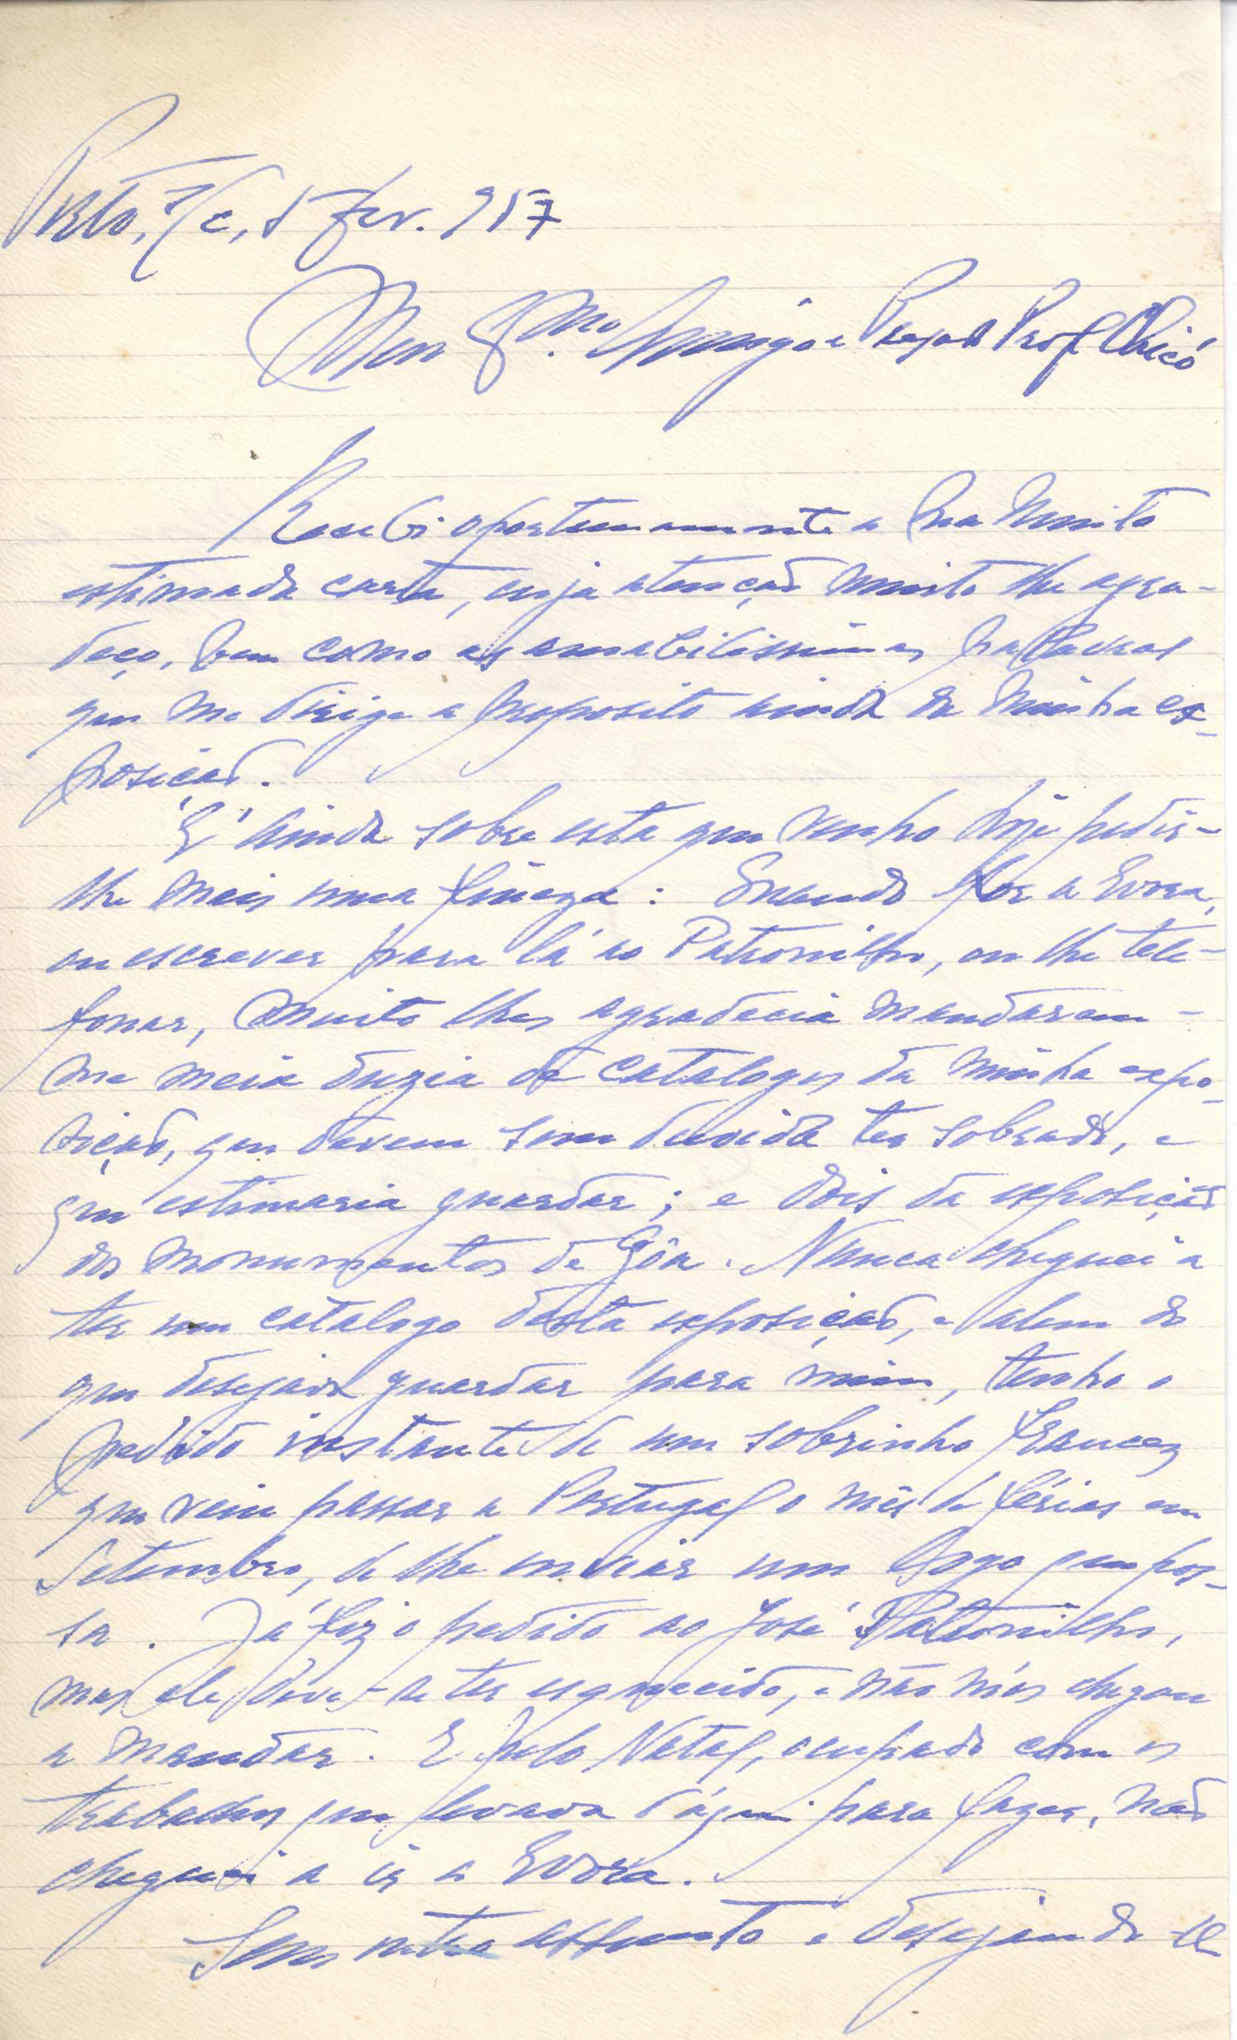 Porto, s/c, 5 Fev. 957
Meu Exmo Amigo e Prezado Prof. Chicó
Recebi oportunamente a sua muito
estimada carta, cuja atenção muito lhe agra-
deço, bem como as amabilissimas palavras
que me dirige a proposito ainda da minha ex-
posição.
É ainda sobre esta que venho hoje pedir-
lhe mais uma fineza: Quando fôr a Evora,
ou escrever para lá ao Patronilho, ou lhe tele-
fonar, muito lhes agradecia mandarem-
me meia duzia de catalogos da minha expo-
sição, que devem sem duvida ter sobrado, e
que estimaria guardar; e dois da exposição
dos monumentos de Gôa. Nunca cheguei a
ter um catalogo desta exposição, e alem do
que desejava guardar para mim, tenho o
pedido instante de um sobrinho francez
que vem passar a Portugal o mês de férias em
Setembro, de lhe enviar um logo que pos-
sa. Já fiz o pedido ao José Patronilho,
mas ele deve-se ter esquecido, e não mos chegou
a mandar. E pelo Natal, ocupado com os
trabalhos que levava d'aqui para fazer, não
cheguei a ir a Evora.
Sem outro assunto e desejando-lhe